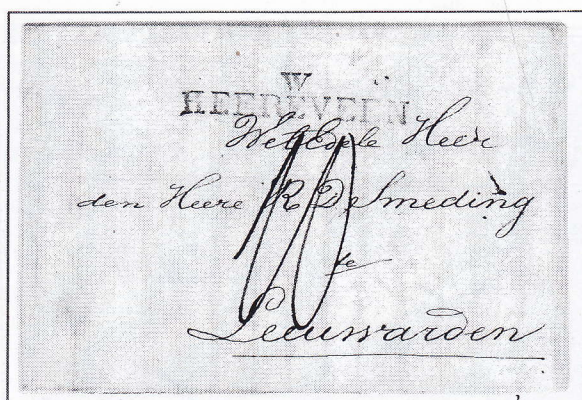 W
HEEREVEEN
WelEdele Heer
den Heere R D Smeding
te
Leeuwarden
10